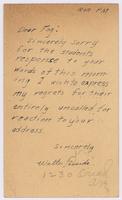 Dear Fog:
Sincerely sorry
for the students
response to your
words of this morn
ing. I wish to express
my regrets for their
entirely uncalled for
reaction to your
address.
Sincerely
Walter
1230